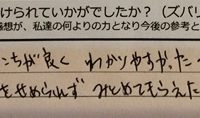 けられていかがでしたか？（ズバリ
感想が、私達の何よりの力となり今後の参考と
こちが良く わかりやすかった
をせめられず みとめてもらえた